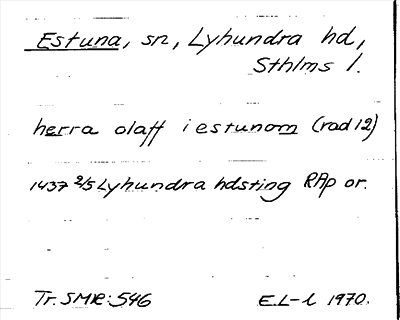 Estuna, sn, Lyhundra hd,
Sthlms l.
herra olaff i estunom (rad 12)
1437 2/5 Lyhundra hdsting RAp or.
Tr. SMR: 546 E.L-l 1970.